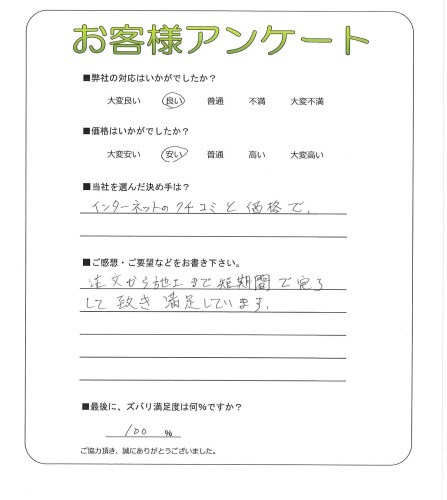 お客様アンケート
■弊社の対応はいかがでしたか？
大変良い 良い 普通 不満 大変不満
■価格はいかがでしたか？
大変安い 安い 普通 高い 大変高い
■当社を選んだ決め手は？
インターネットのクチコミと価格で、
■ご感想・ご要望などをお書き下さい。
注文から施工まで短期間で完了
して致き満足しています。
■最後に、ズバリ満足度は何%ですか？
100 %
ご協力頂き、誠にありがとうございました。